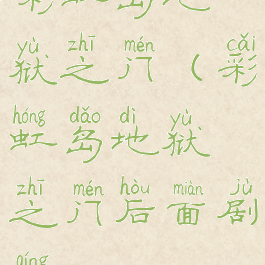 yù zhī mén cǎi
狱之门（彩
hóng dǎo dì yù
虹岛地狱
zhī mén hòu miàn jù
之门后面剧
qíng